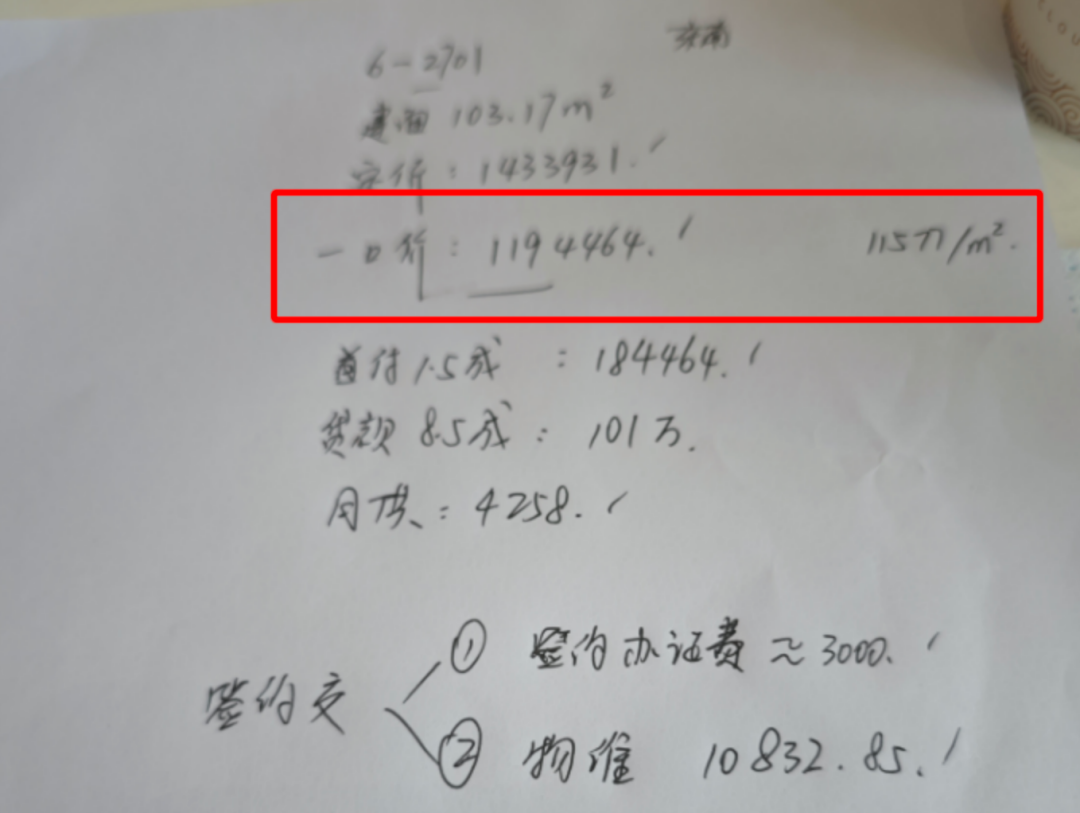 6-2701
建面 103.17m²
定价：1433931.
一口价：1194464. 1.15万/m².
首付1.5成：184464.
贷款8.5成：101万.
月供：4258.
签约交
① 签约办证费≈3000.
② 物维 10832.85.